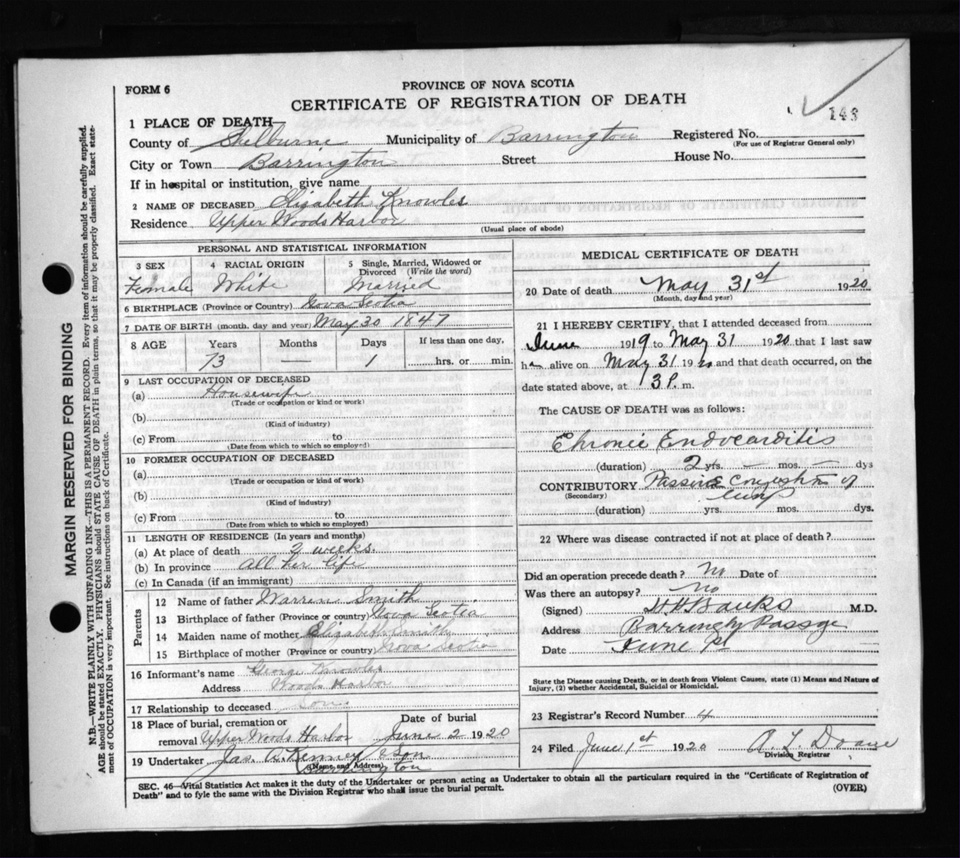 FORM 6
PROVINCE OF NOVA SCOTIA
CERTIFICATE OF REGISTRATION OF DEATH
143
1 PLACE OF DEATH—
County of Shelburne Municipality of Barrington Registered No.
(For use of Registrar General only)
City or Town Barrington Street House No.
If in hospital or institution, give name
2 NAME OF DECEASED Elizabeth Knowles
Residence Upper Woods Harbor
(Usual place of abode)
PERSONAL AND STATISTICAL INFORMATION
3 SEX 4 RACIAL ORIGIN 5 Single, Married, Widowed or Divorced (Write the word)
Female White Married
6 BIRTHPLACE (Province or Country) Nova Scotia
7 DATE OF BIRTH (month, day and year) May 30 1847
8 AGE Years Months Days If less than one day,
73 — 1 hrs. or min.
9 LAST OCCUPATION OF DECEASED
(a) Housewife
(Trade or occupation or kind or work)
(b)
(Kind of industry)
(c) From to
(Date from which to which so employed)
10 FORMER OCCUPATION OF DECEASED
(a)
(Trade or occupation or kind or work)
(b)
(Kind of industry)
(c) From to
(Date from which to which so employed)
11 LENGTH OF RESIDENCE (In years and months)
(a) At place of death 2 weeks.
(b) In province All her life
(c) In Canada (if an immigrant)
Parents
12 Name of father Warren Smith
13 Birthplace of father (Province or country) Nova Scotia
14 Maiden name of mother Elizabeth Smith
15 Birthplace of mother (Province or country) Nova Scotia
16 Informant's name George Knowles
Address Woods Harbor
17 Relationship to deceased Son
18 Place of burial, cremation or Date of burial
removal Upper Woods Harbor June 2 1920
19 Undertaker Jas. A. Kenney & Son
(Name and Address)
Barrington
MEDICAL CERTIFICATE OF DEATH
20 Date of death May 31st 1920
(Month, day and year)
21 I HEREBY CERTIFY, that I attended deceased from
June 1919 to May 31 1920 that I last saw
h alive on May 31 1920 and that death occurred, on the
date stated above, at 3 P. m.
The CAUSE OF DEATH was as follows:
Chronic Endocarditis
(duration) 2 yrs. — mos. — dys
CONTRIBUTORY Passive Congestion of
(Secondary) lung
(duration) yrs. mos. dys.
22 Where was disease contracted if not at place of death?
Did an operation precede death? No Date of
Was there an autopsy? No
(Signed) H.H. Banks M.D.
Address Barrington Passage
Date June 1st
State the Disease causing Death, or in death from Violent Causes, state (1) Means and Nature of
Injury, (2) whether Accidental, Suicidal or Homicidal.
23 Registrar's Record Number 4
24 Filed June 1st 1920 A. L. Doane
Division Registrar
SEC. 46—Vital Statistics Act makes it the duty of the Undertaker or person acting as Undertaker to obtain all the particulars required in the "Certificate of Registration of
Death" and to fyle the same with the Division Registrar who shall issue the burial permit. (OVER)
MARGIN RESERVED FOR BINDING
N.B.—WRITE PLAINLY, WITH UNFADING INK—THIS IS A PERMANENT RECORD. Every item of information should be carefully supplied.
AGE should be stated EXACTLY. PHYSICIANS should STATE CAUSE OF DEATH in plain terms, so that it may be properly classified. Exact state-
ment of OCCUPATION is very important. See instructions on back of Certificate.